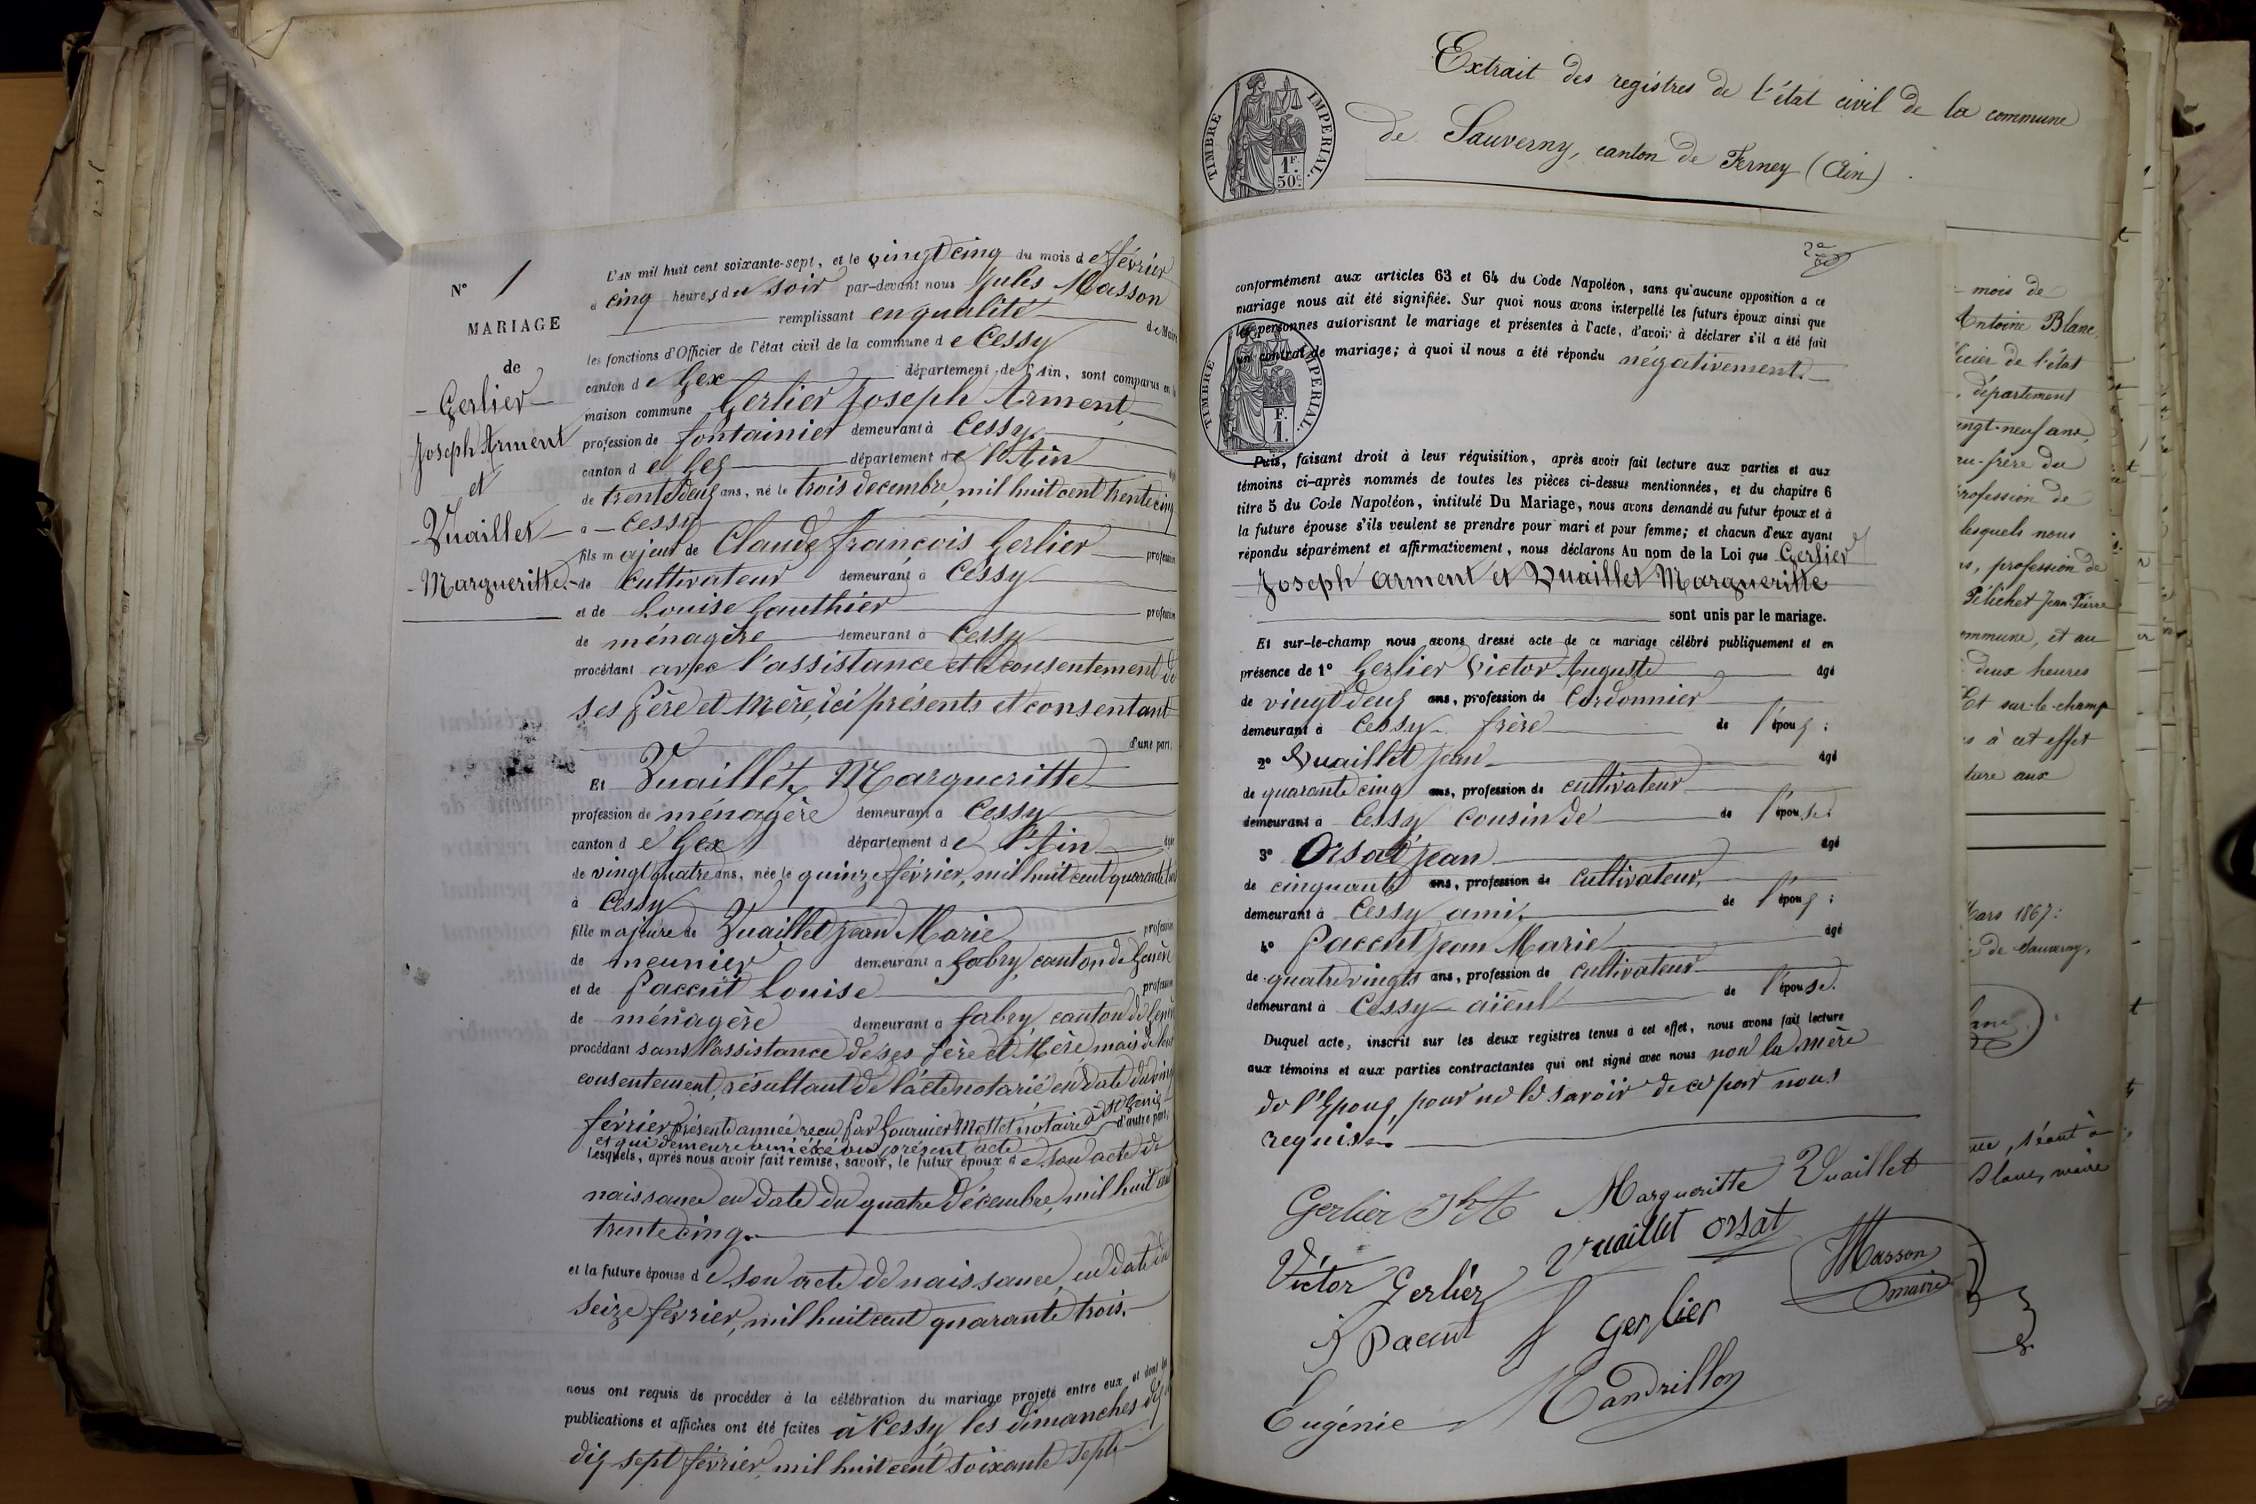 N° 1
MARIAGE
de
Gerlier
Joseph Arment
et
Vuaillet
Margueritte
L'AN mil huit cent soixante-sept, et le vingt cinq du mois de février
à cinq heures du soir par-devant nous Jules Masson
remplissant en qualité de Maire
les fonctions d'Officier de l'état civil de la commune de Cessy
canton de Gex département de l'Ain, sont comparus en la
maison commune Gerlier Joseph Arment
profession de fontainier demeurant à Cessy
canton de Gex département de l'Ain
de trente deux ans, né le trois decembre, mil huit cent trente cinq
à Cessy
fils majeur de Claude françois Gerlier profession
de cultivateur demeurant à Cessy
et de Louise Gauthier profession
de ménagère demeurant à Cessy
procédant avec l'assistance et le consentement de
ses père et Mère, ici présents et consentant
d'une part,
Et Vuaillet, Margueritte
profession de ménagère demeurant à Cessy
canton de Gex département de l'Ain âgée
de vingt quatre ans, née le quinze février, mil huit cent quarante trois
à Cessy
fille majeure de Vuaillet jean Marie profession
de meunier demeurant à fabry, canton de Genève
et de Paccut Louise profession
de ménagère demeurant à fabry, canton de Genève
procédant sans l'assistance de ses père et Mère, mais de leur
consentement, résultant de l'acte notarié en date du vingt
février présente année reçu par Fournier Mottet notaire à St Genis d'autre part,
et qui demeure annéxé au présent acte
Lesquels, après nous avoir fait remise, savoir, le futur époux de son acte de
naissance en date du quatre Décembre, mil huit cent
trente cinq.
et la future épouse de son acte de naissance, en date du
seize février, mil huit cent quarante trois.
nous ont requis de procéder à la célébration du mariage projeté entre eux et dont les
publications et affiches ont été faites à Cessy les dimanches dix
dix sept février, mil huit cent soixante sept
Extrait des registres de l'état civil de la commune
de Sauverny, canton de Ferney (Ain).
TIMBRE IMPERIAL.
1F. 50c.
conformément aux articles 63 et 64 du Code Napoléon, sans qu'aucune opposition a ce
mariage nous ait été signifiée. Sur quoi nous avons interpellé les futurs époux ainsi que
les personnes autorisant le mariage et présentes à l'acte, d'avoir à déclarer s'il a été fait
un contrat de mariage; à quoi il nous a été répondu négativement.
TIMBRE IMPERIAL.
F. 1.
Puis, faisant droit à leur réquisition, après avoir fait lecture aux parties et aux
témoins ci-après nommés de toutes les pièces ci-dessus mentionnées, et du chapitre 6
titre 5 du Code Napoléon, intitulé Du Mariage, nous avons demandé au futur époux et à
la future épouse s'ils veulent se prendre pour mari et pour femme; et chacun d'eux ayant
répondu séparément et affirmativement, nous déclarons Au nom de la Loi que Gerlier
Joseph Arment et Vuaillet Margueritte
sont unis par le mariage.
Et sur-le-champ nous avons dressé acte de ce mariage célébré publiquement et en
présence de 1° Gerlier Victor Auguste âgé
de vingt deux ans, profession de Cordonnier
demeurant à Cessy frère de l'époux;
2° Vuaillet jean âgé
de quarante cinq ans, profession de cultivateur
demeurant à Cessy cousin de de l'épouse.
3° Orsat jean âgé
de cinquante ans, profession de cultivateur,
demeurant à Cessy ami, de l'époux;
4° Paccut jean Marie âgé
de quatre vingts ans, profession de cultivateur
demeurant à Cessy aïeul de l'épouse.
Duquel acte, inscrit sur les deux registres tenus à cet effet, nous avons fait lecture
aux témoins et aux parties contractantes qui ont signé avec nous non la mère
de l'Epoux, pour ne le savoir de ce par nous
requise.
Gerlier Jh A Margueritte Vuaillet
Victor Gerlier Vuaillet Orsat
Masson
maire
Paccut Gerlier
Eugénie Mandrillon
mois de
Antoine Blanc,
officier de l'état
département
vingt-neuf ans,
frère du
profession de
lesquels nous
profession de
Pélichet Jean-Pierre
commune, et au
deux heures
Et sur-le-champ
à cet effet
lecture aux
Mars 1867:
de Sauverny,
séant à
Blanc, maire